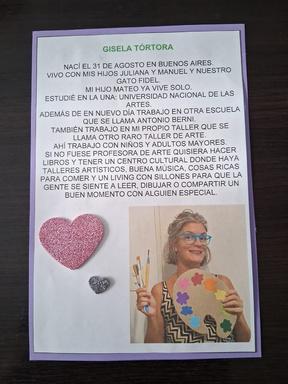 GISELA TÓRTORA
NACÍ EL 31 DE AGOSTO EN BUENOS AIRES.
VIVO CON MIS HIJOS JULIANA Y MANUEL Y NUESTRO
GATO FIDEL.
MI HIJO MATEO YA VIVE SOLO.
ESTUDIÉ EN LA UNA: UNIVERSIDAD NACIONAL DE LAS
ARTES.
ADEMÁS DE EN NUEVO DÍA TRABAJO EN OTRA ESCUELA
QUE SE LLAMA ANTONIO BERNI.
TAMBIÉN TRABAJO EN MI PROPIO TALLER QUE SE
LLAMA OTRO RARO TALLER DE ARTE.
AHÍ TRABAJO CON NIÑOS Y ADULTOS MAYORES.
SI NO FUESE PROFESORA DE ARTE QUISIERA HACER
LIBROS Y TENER UN CENTRO CULTURAL DONDE HAYA
TALLERES ARTÍSTICOS, BUENA MÚSICA, COSAS RICAS
PARA COMER Y UN LIVING CON SILLONES PARA QUE LA
GENTE SE SIENTE A LEER, DIBUJAR O COMPARTIR UN
BUEN MOMENTO CON ALGUIEN ESPECIAL.